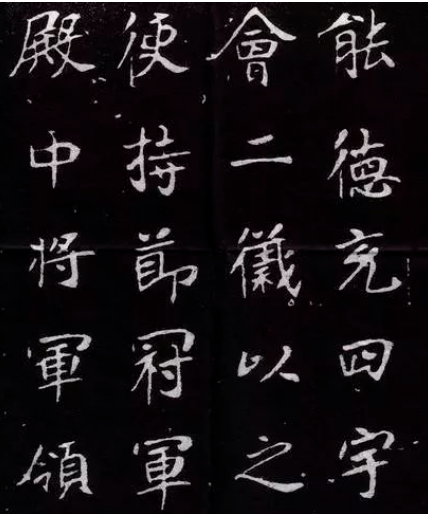 能德充四宇
會二儀以之
使持節冠軍
殿中將軍領